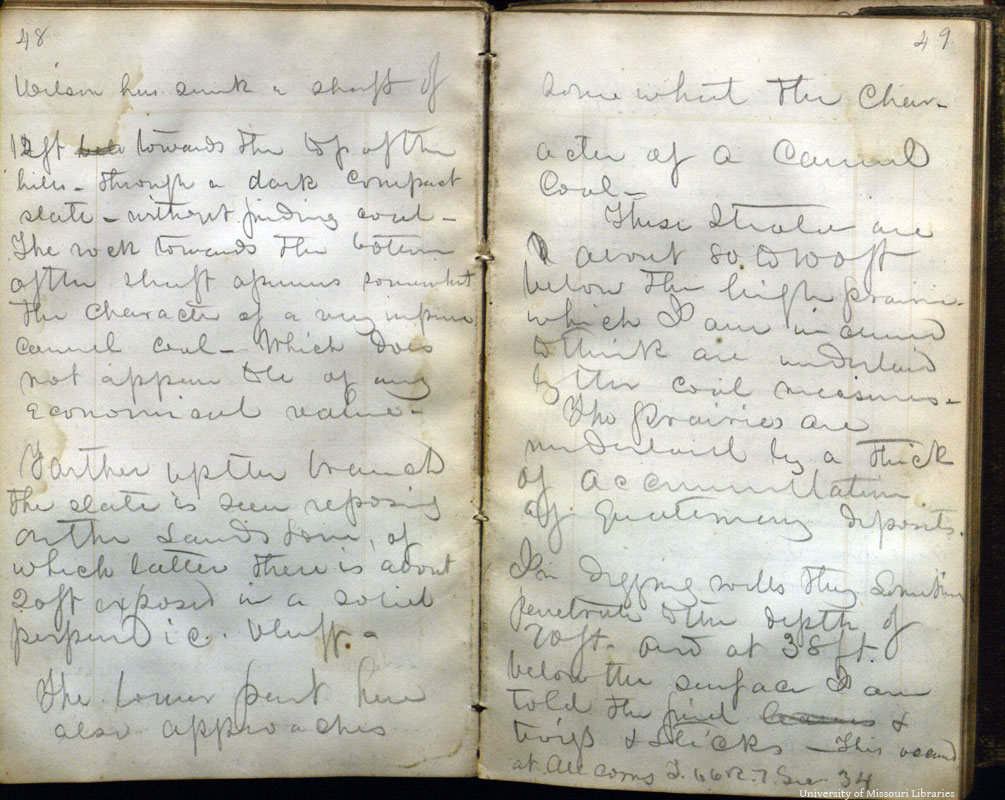 48
Wilson has sunk a shaft of
12ft below towards the top of the
hills - through a dark compact
slate - without finding coal -
The rock towards the bottom
of the shaft assumes somewhat
the character of a very impure
cannel coal - Which does
not appear to be of any
Economical value -
Farther up the branch
the slate is seen reposing
on the Sandstone, of
which latter there is about
20ft exposed in a solid
perpendic. bluff -
The lower part here
also approaches
49
Somewhat the Char-
acter of a Cannel
Coal -
These Strata are
about 80 to 100ft
below the high prairie -
which I am inclined
to think are underlaid
by the coal measures -
The prairies are
underlaid by a thick
of accumulation
of Quaternary deposits.
In digging wells they Sometimes
penetrate to the depth of
70ft. And at 38ft.
below the surface I am
told the find leaves &
twigs & sticks - This occurs
at T. 66 R. 7. Sec. 34
University of Missouri Libraries